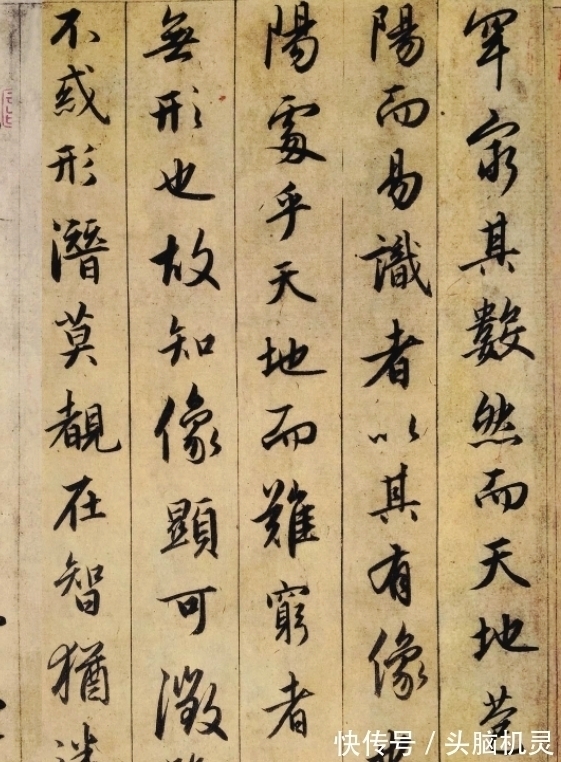 罕窮其數然而天地苞
陽而易識者以其有像
陽處乎天地而難窮者
無形也故知像顯可徵
不惑形潛莫覩在智猶迷
快传号 / 头脑机灵